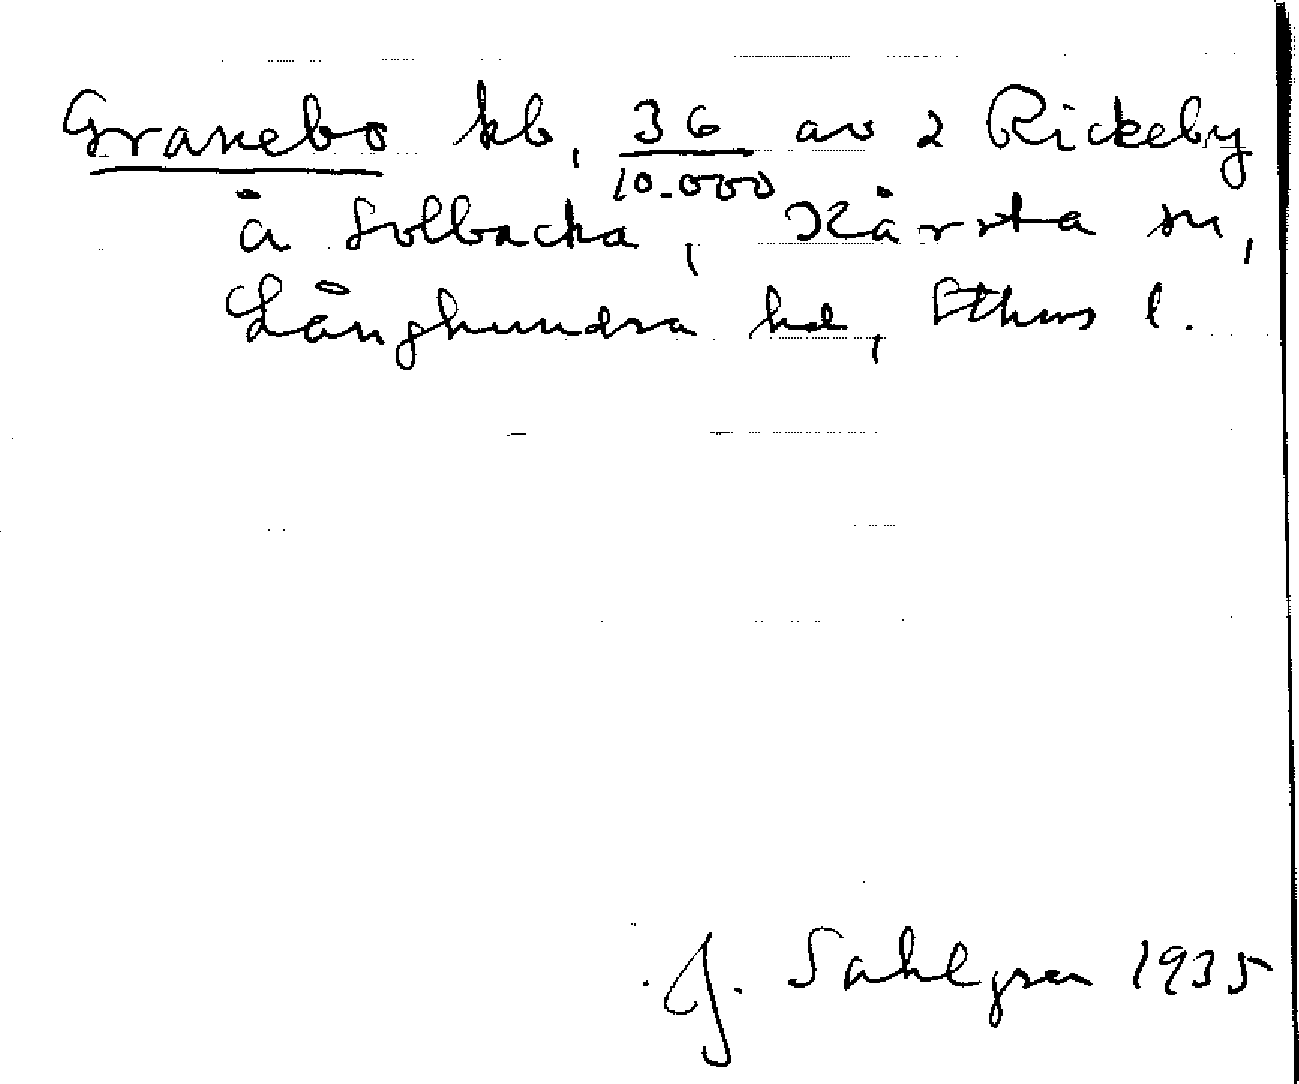 Granebo kb, 36/10.000 av 2 Rickeby
å Solbacka, Kårsta sn,
Långhundra hd, Sthms l.
J. Sahlgren 1935